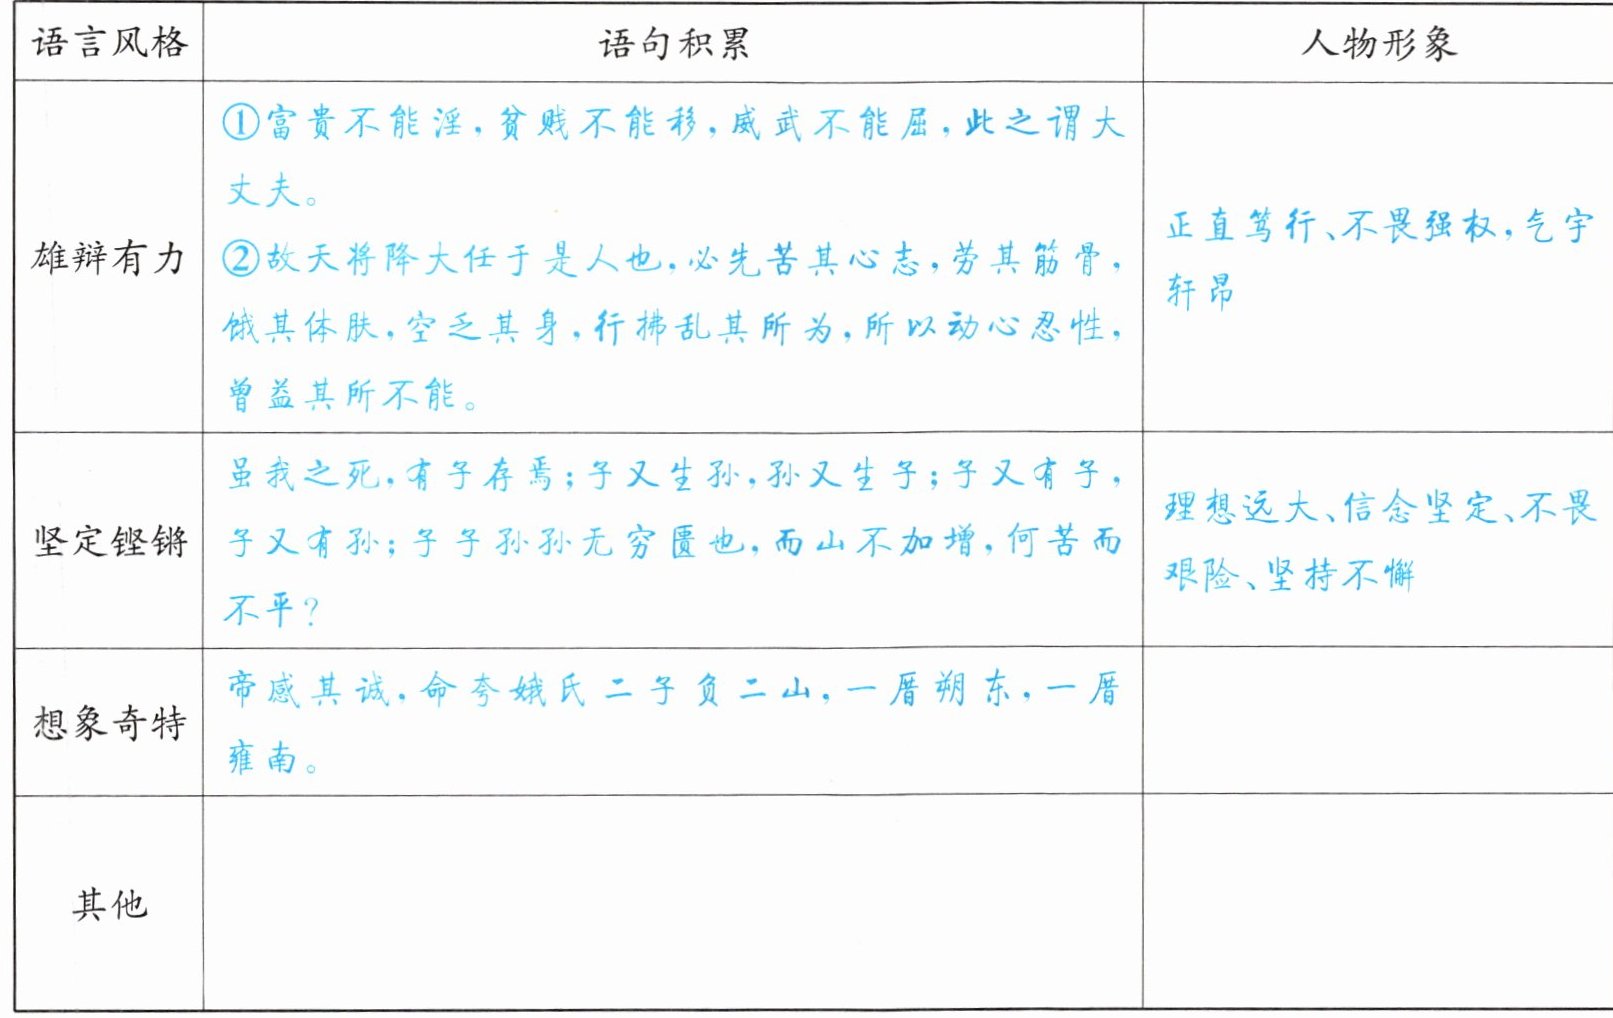 语言风格
语句积累
人物形象
雄辩有力
①富贵不能淫，贫贱不能移，威武不能屈，此之谓大
丈夫。
②故天将降大任于是人也，必先苦其心志，劳其筋骨，
饿其体肤，空乏其身，行拂乱其所为，所以动心忍性，
曾益其所不能。
正直笃行、不畏强权，气宇
轩昂
坚定铿锵
虽我之死，有子存焉；子又生孙，孙又生子；子又有子，
子又有孙；子子孙孙无穷匮也，而山不加增，何苦而
不平？
理想远大、信念坚定、不畏
艰险、坚持不懈
想象奇特
帝感其诚，命夸娥氏二子负二山，一厝朔东，一厝
雍南。
其他